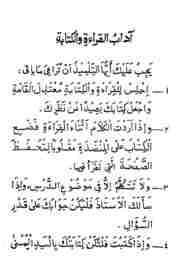 آداب القراءة والكتابة
يَجِبُ عَلَيْكَ أَيُّهَا التِّلْمِيذُ أَنْ تُرَاعِيَ مَا يَأْتِي:
١ — اِجْلِسْ لِلْقِرَاءَةِ وَالْكِتَابَةِ مُعْتَدِلَ الْقَامَةِ
وَاجْعَلْ كِتَابَكَ بَعِيدًا مِنْ نَظَرِكَ.
٢ — وَإِذَا أَرَدْتَ الْكَلَامَ أَثْنَاءَ الْقِرَاءَةِ فَضَعِ
الْكِتَابَ عَلَى الْمِنْضَدَةِ مَقْلُوبًا لِتَحْفَظَ
الصَّفْحَةَ الَّتِي تَقْرَأُ فِيهَا.
٣ — وَلَا تَتَكَلَّمْ إِلَّا فِي مَوْضُوعِ الدَّرْسِ، وَإِذَا
سَأَلَكَ الْأُسْتَاذُ فَلْيَكُنْ جَوَابُكَ عَلَى قَدْرِ
السُّؤَالِ.
٤ — وَإِذَا كَتَبْتَ فَلْتَكُنْ كِتَابَتُكَ بِالْيَدِ الْيُمْنَى